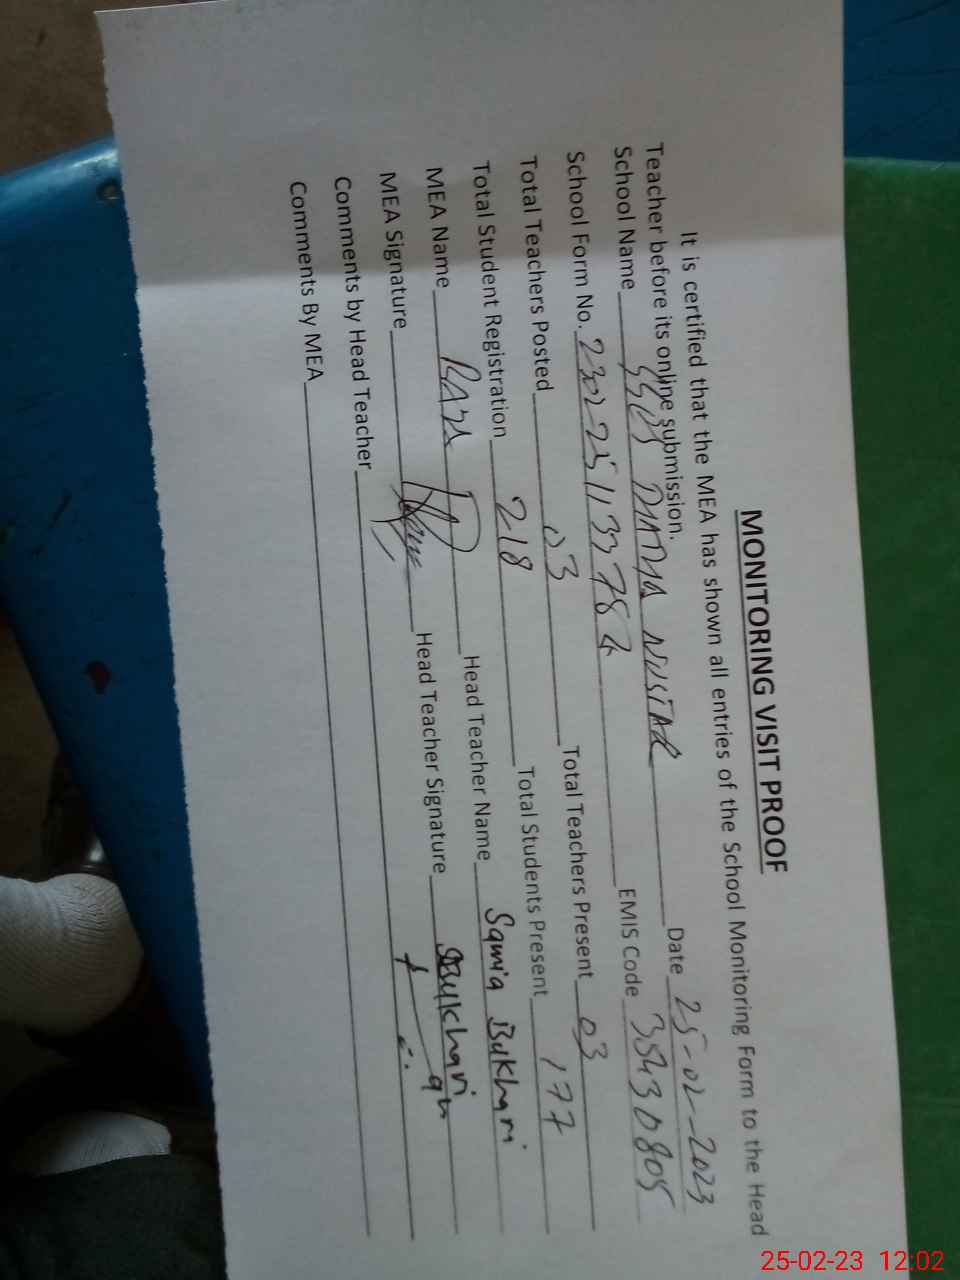 MONITORING VISIT PROOF
It is certified that the MEA has shown all entries of the School Monitoring Form to the Head
Teacher before its online submission.
School Name NUSIAR Date 25-02-2023
School Form No. EMIS Code 38430805
Total Teachers Posted 03 Total Teachers Present 03
Total Student Registration 218 Total Students Present 177
MEA Name Head Teacher Name Samia Bukhari
MEA Signature Head Teacher Signature Bukhari
Comments by Head Teacher
Comments By MEA
25-02-23 12:02